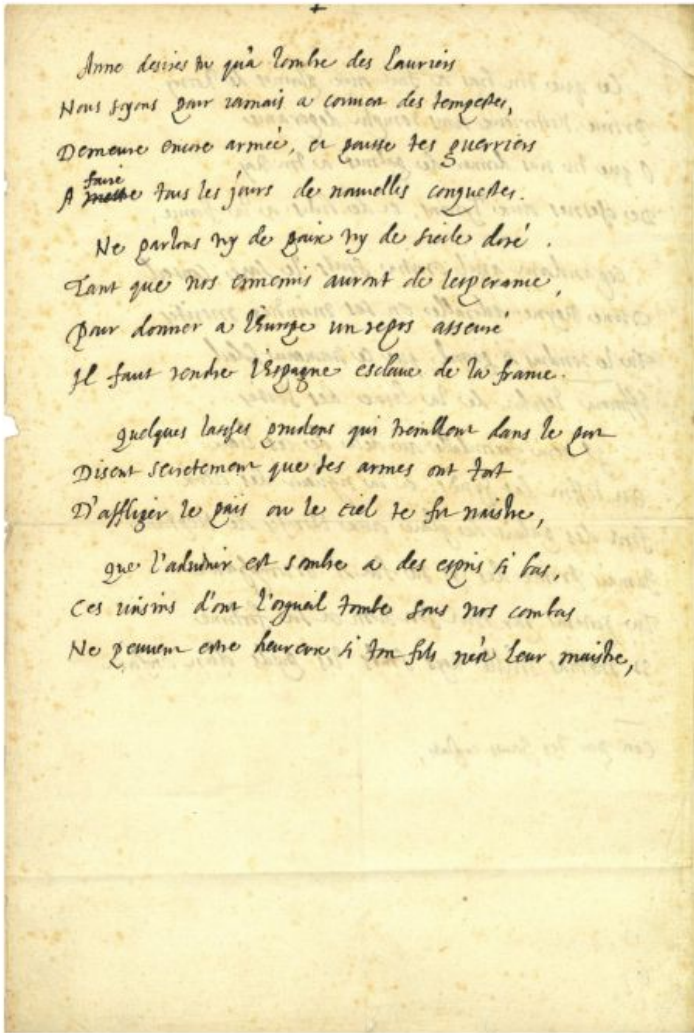 Anne desires tu qu'a lombre des Lauriers
Nous soyons pour iamais a couuert des tempestes,
Demeure encore armée, et pousse tes guerriers
faire
A mettre tous les jours de nouvelles conquestes.
Ne parlons ny de paix ny de siecle doré.
Tant que nos ennemis auront de lesperance,
Pour donner a l'Europe un repos asseuré
Il faut rendre l'Espagne esclaue de la france.
Quelques lasches prudens qui tremblent dans le port
Disent secretement que tes armes ont tort
D'affliger le païs ou le ciel te fit naistre,
Que l'aduenir est sombre a des espris si bas,
Ces uoisins d'ont l'orgueil tombe sous nos combas
Ne peuuent estre heureux si ton fils n'est leur maistre,